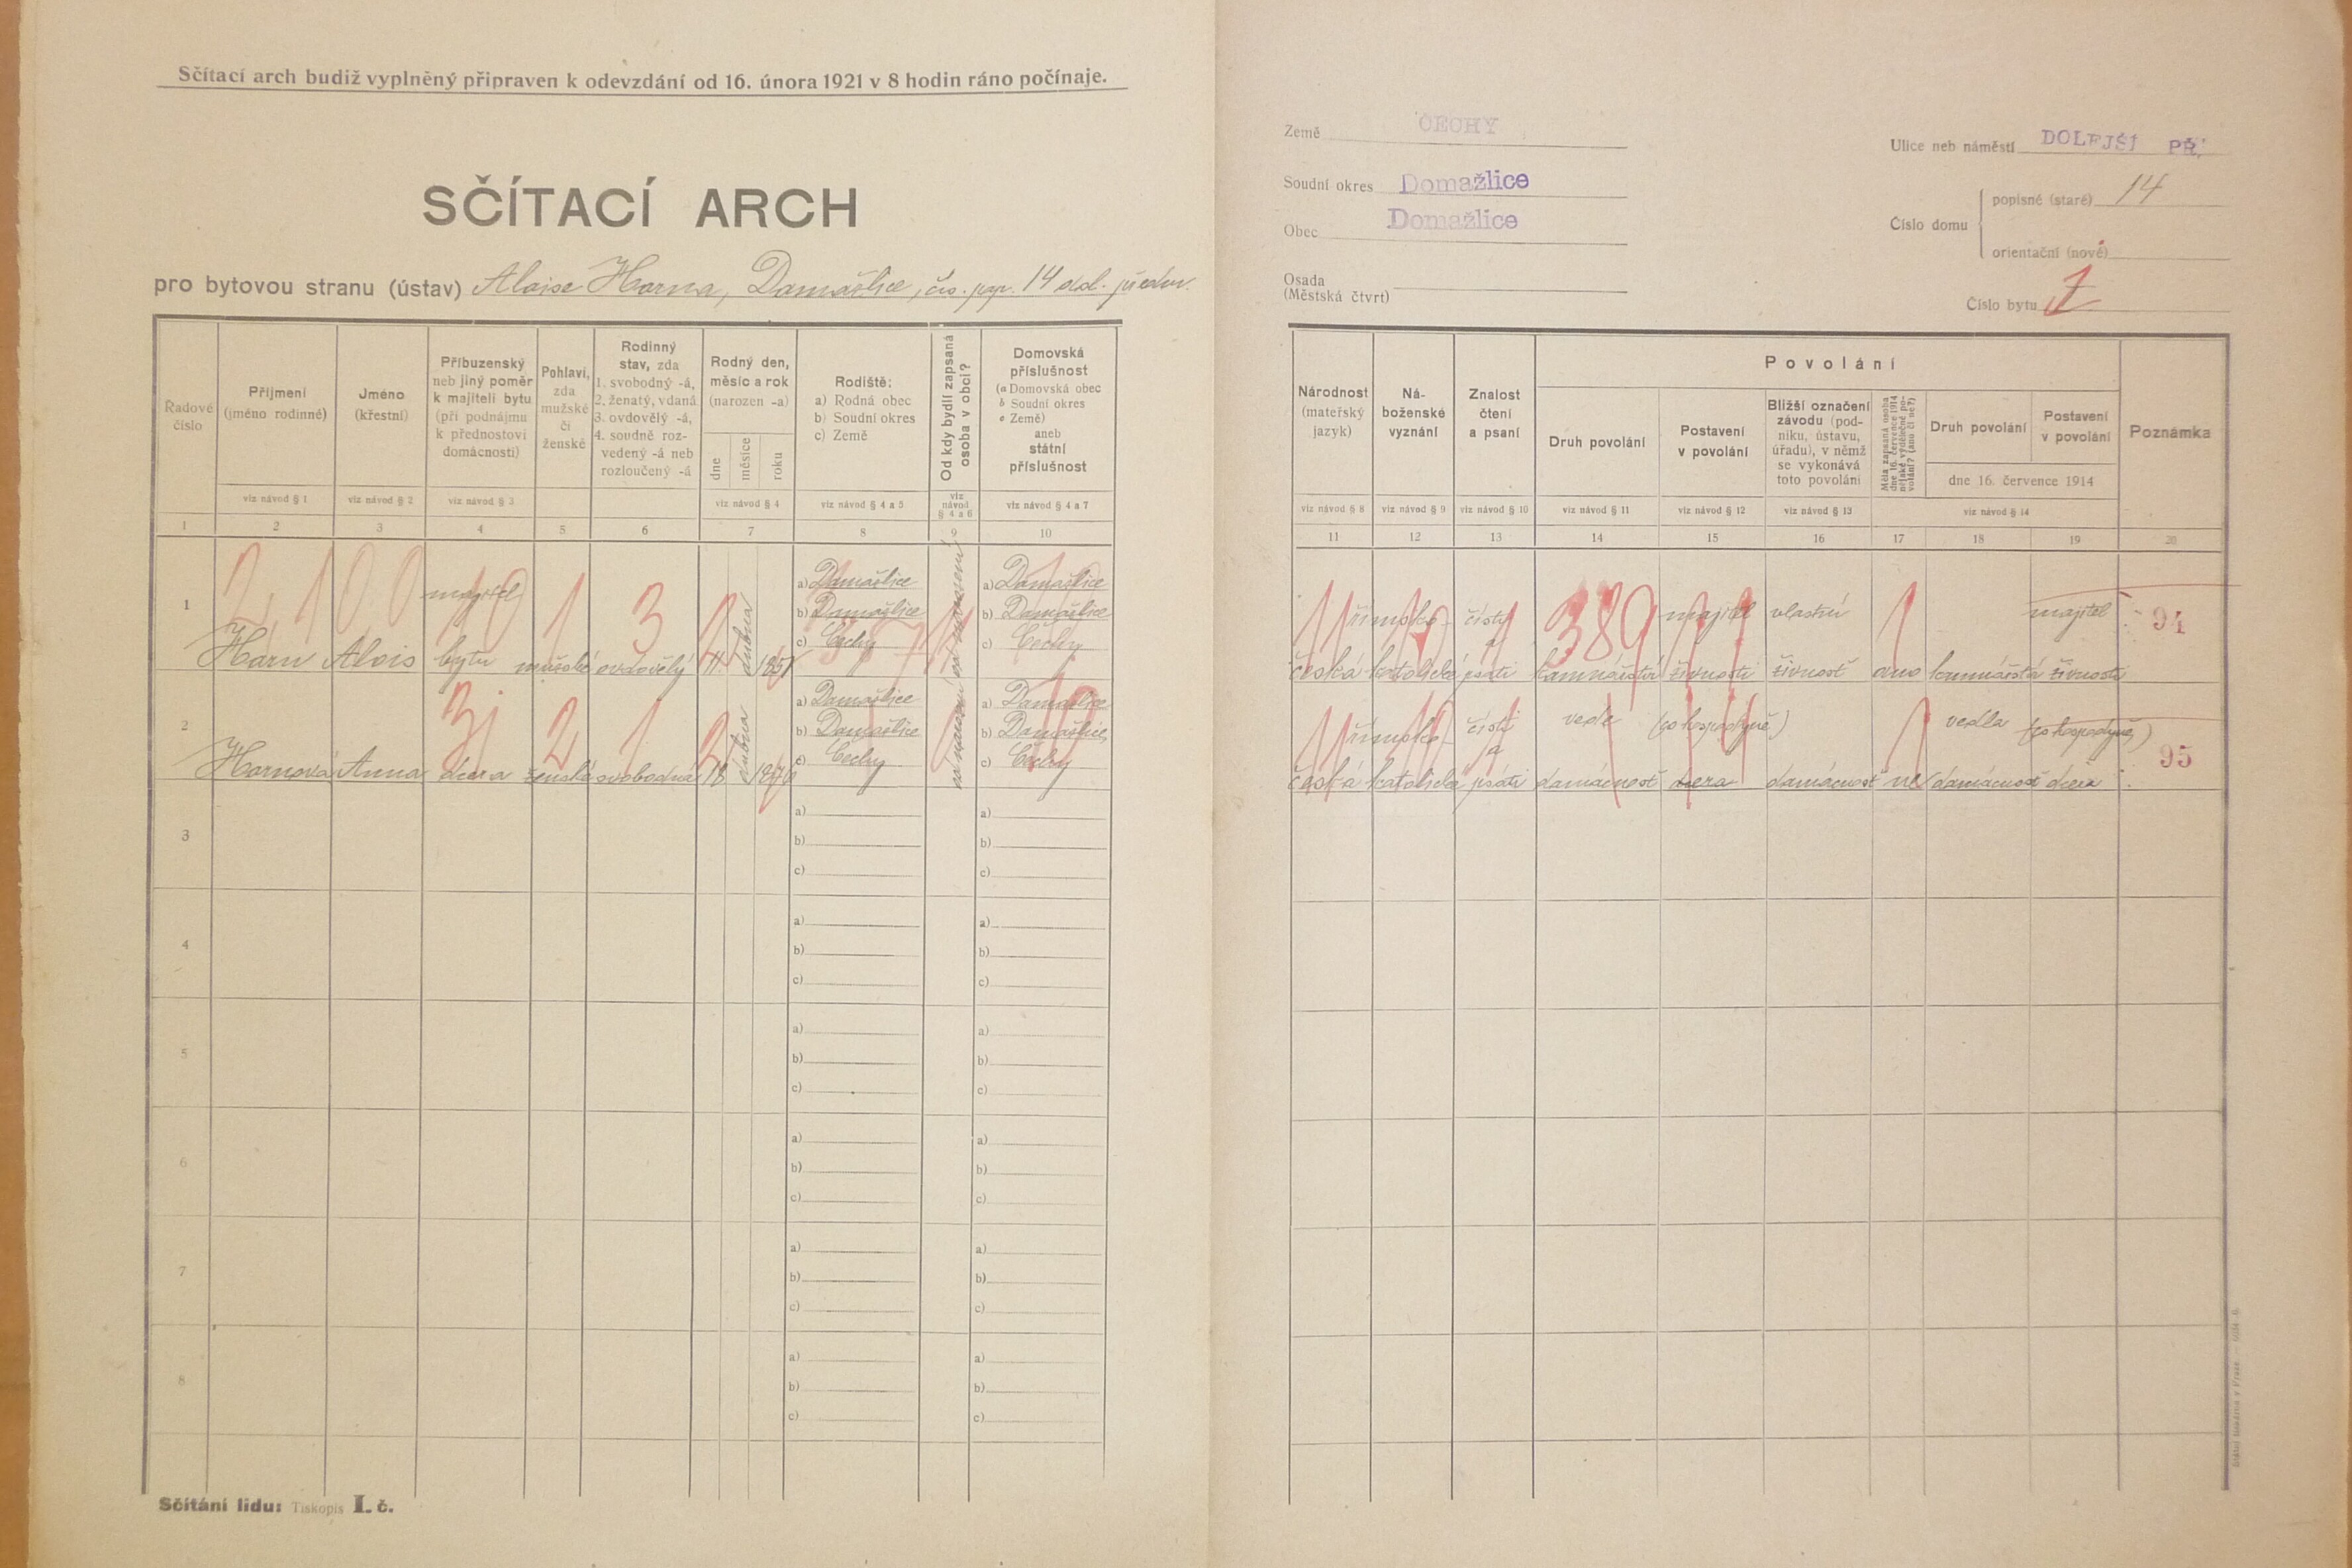 Sčítací arch budiž vyplněný připraven k odevzdání od 16. února 1921 v 8 hodin ráno počínaje.
SČÍTACÍ ARCH
pro bytovou stranu (ústav) Aloise Horna, Domažlice, čís. pop. 14 dol. předm.
Řadové číslo
Příjmení
(jméno rodinné)
viz návod § 1
Jméno
(křestní)
viz návod § 2
Příbuzenský
neb jiný poměr
k majiteli bytu
(při podnájmu
k přednostovi
domácnosti)
viz návod § 3
Pohlaví,
zda
mužské
či
ženské
Rodinný
stav, zda
1. svobodný -á,
2. ženatý, vdaná
3. ovdovělý -á,
4. soudně roz-
vedený -á neb
rozloučený -á
Rodný den,
měsíc a rok
(narozen -a)
dne
měsíce
roku
viz návod § 4
Rodiště:
a) Rodná obec
b) Soudní okres
c) Země
viz návod § 4 a 5
Od kdy bydlí zapsaná
osoba v obci?
viz
návod
§ 4 a 6
Domovská
příslušnost
(a Domovská obec
b Soudní okres
c Země)
aneb
státní
příslušnost
viz návod § 4 a 7
1 2 3 4 5 6 7 8 9 10
1
Horn
Alois
majitel
bytu
mužské
ovdovělý
11.
dubna
a) Domažlice
b) Domažlice
c) Čechy
od narození
a) Domažlice
b) Domažlice
c) Čechy
2
Hornová
Anna
dcera
ženské
svobodná
18
dubna
a) Domažlice
b) Domažlice
c) Čechy
od narození
a) Domažlice
b) Domažlice
c) Čechy
3
a)
b)
c)
a)
b)
c)
4
a)
b)
c)
a)
b)
c)
5
a)
b)
c)
a)
b)
c)
6
a)
b)
c)
a)
b)
c)
7
a)
b)
c)
a)
b)
c)
8
a)
b)
c)
a)
b)
c)
Sčítání lidu: Tiskopis I. č.
Země ČECHY
Soudní okres Domažlice
Obec Domažlice
Osada
(Městská čtvrt)
Ulice neb náměstí DOLEJŠÍ PŘ.
Číslo domu
popisné (staré) 14
orientační (nové)
Číslo bytu 1
Národnost
(mateřský
jazyk)
viz návod § 8
Ná-
boženské
vyznání
viz návod § 9
Znalost
čtení
a psaní
viz návod § 10
Povolání
Druh povolání
viz návod § 11
Postavení
v povolání
viz návod § 12
Bližší označení
závodu (pod-
niku, ústavu,
úřadu), v němž
se vykonává
toto povolání
viz návod § 13
Měla zapsaná osoba
dne 16. července 1914
nějaké výdělečné po-
volání? (ano či ne?)
Druh povolání
Postavení
v povolání
dne 16. července 1914
viz návod § 14
Poznámka
11 12 13 14 15 16 17 18 19 20
česká
římsko-
katolické
čísti
a
psáti
389
majitel
živnosti
vlastní
živnost
ano
majitel
živnosti
94
česká
římsko-
katolické
čísti
a
psáti
vede
domácnost
(co hospodyně)
dcera
domácnost
ne
vedla
domácnost
(co hospodyně)
dcera
95